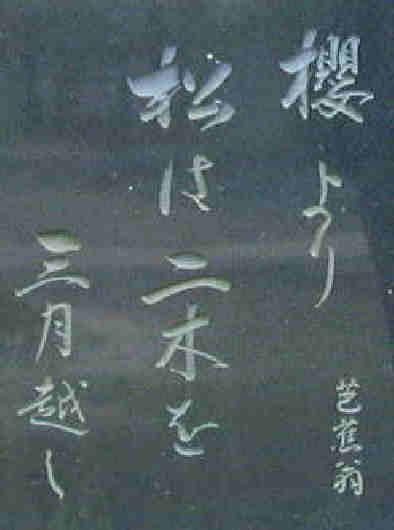 櫻より
松は二木を
三月越し
芭蕉翁